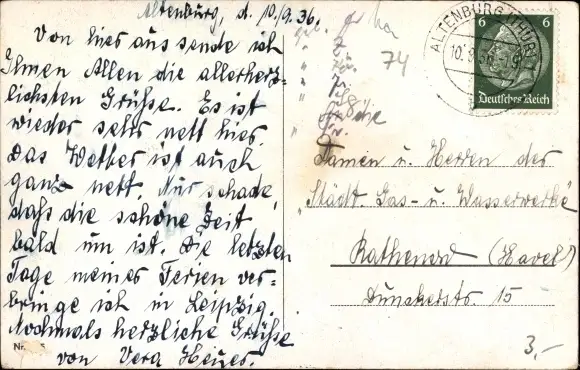 Altenburg, d. 10./9.36.
Von hier aus sende ich
Ihnen Allen die allerherz-
lichsten Grüße. Es ist
wieder sehr nett hier.
Das Wetter ist auch
ganz nett. Nur schade,
daß die schöne Zeit
bald um ist. Die letzten
Tage meiner Ferien ver-
bringe ich in Leipzig.
Nochmals herzliche Grüße
von Vera
Nr.
gel.
74
ALTENBURG (THÜR)
10.9.36
6 6
Deutsches Reich
Damen u. Herren der
"Städt. Gas- u. Wasserwerke"
Rathenow (Havel)
Dunckerstr. 15
3,-